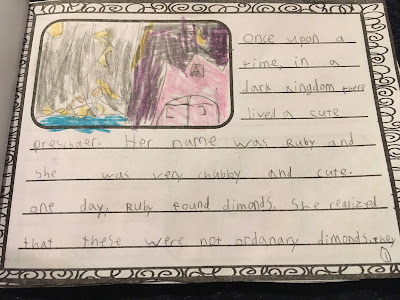 Once upon a
time, in a
dark kingdom there
lived a cute
preschaer. Her name was Ruby and
she was very chubby and cute.
one day, Ruby found dimonds. She realized
that these were not ordanary dimonds. they
1